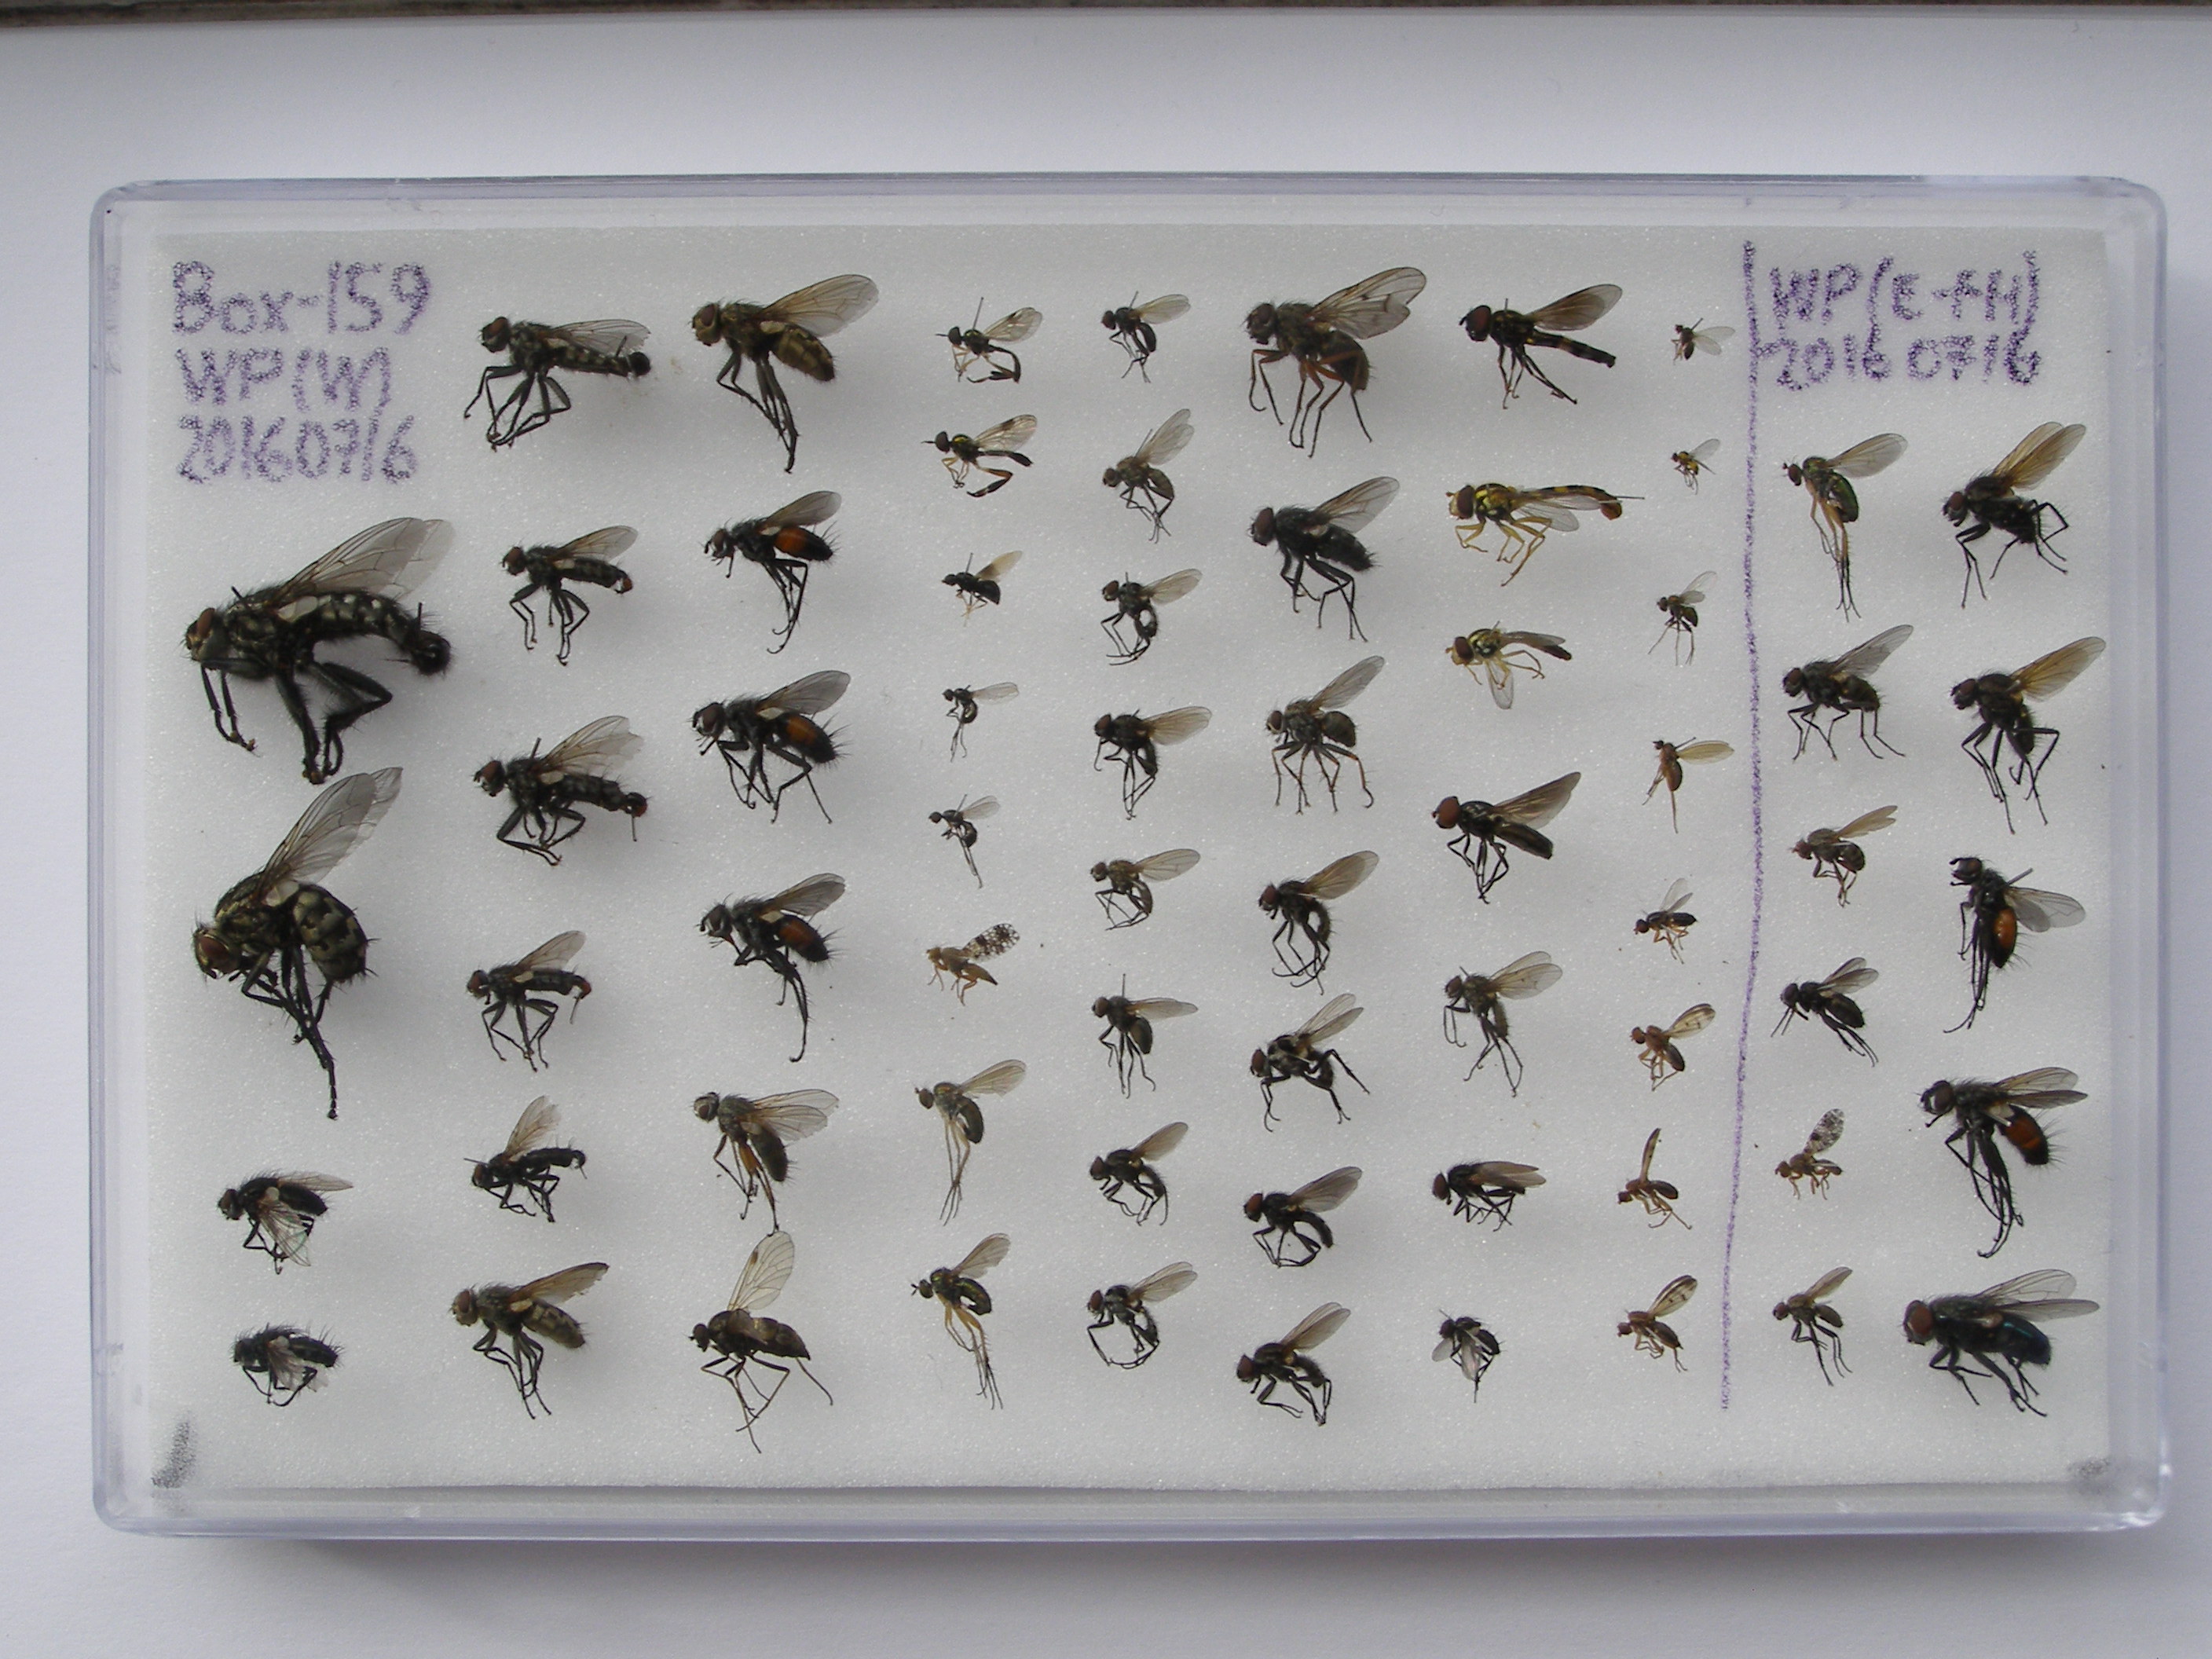 Box-159
WP(W)
20160716
WP(E+H)
20160716